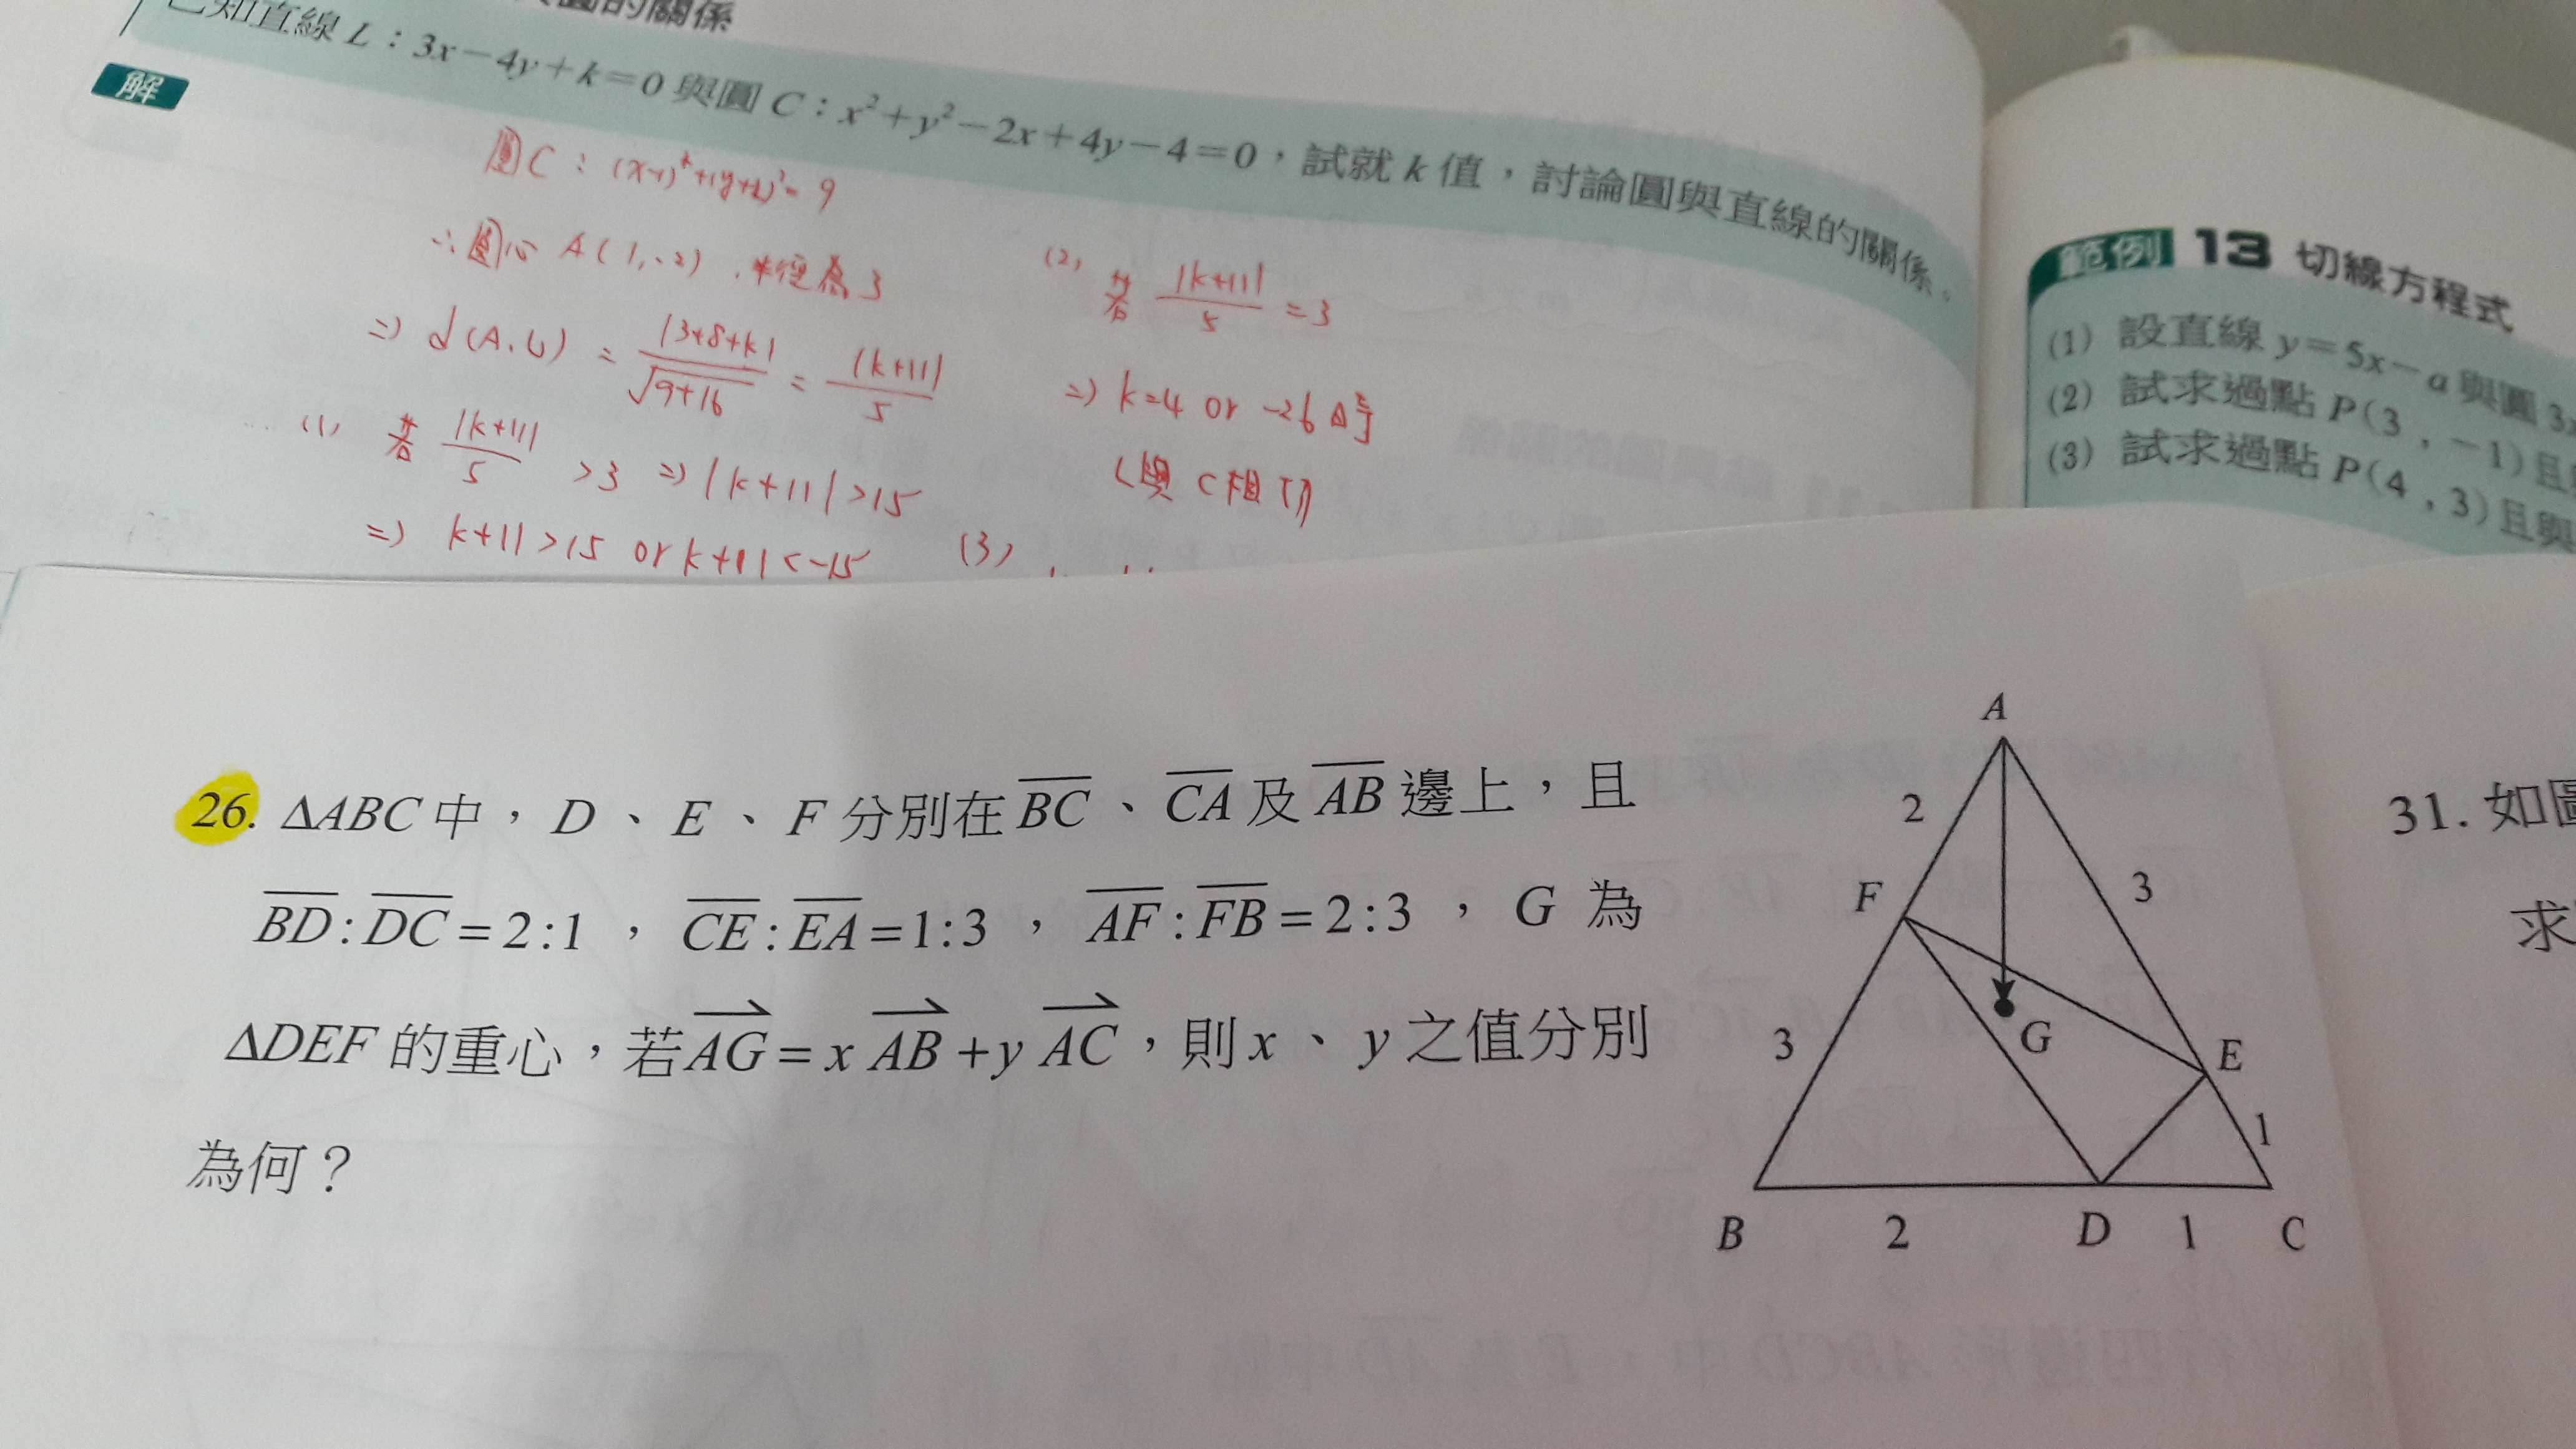 圓的關係
已知直線 L：3x－4y＋k＝0 與圓 C：x²＋y²－2x＋4y－4＝0，試就 k 值，討論圓與直線的關係。
解
圓C：(x-1)²+(y+2)²=9
∴圓心 A(1,-2)，半徑為3
=> d(A,L) = |3+8+k| / √9+16 = |k+11| / 5
(1) 若 |k+11| / 5 >3 => |k+11|>15
=> k+11>15 or k+11<-15
(2) 若 |k+11| / 5 =3
=> k=4 or -26 時
(與C相切)
(3)
範例 13 切線方程式
(1) 設直線 y＝5x－a 與圓 3x
(2) 試求過點 P(3，－1)且
(3) 試求過點 P(4，3)且與
26. ΔABC 中，D、E、F 分別在 BC、CA 及 AB 邊上，且
BD:DC=2:1，CE:EA=1:3，AF:FB=2:3，G 為
ΔDEF 的重心，若 AG=x AB+y AC，則 x、y 之值分別
為何？
A
2
3
F
G
3
E
1
B
2
D
1
C
31. 如圖
求